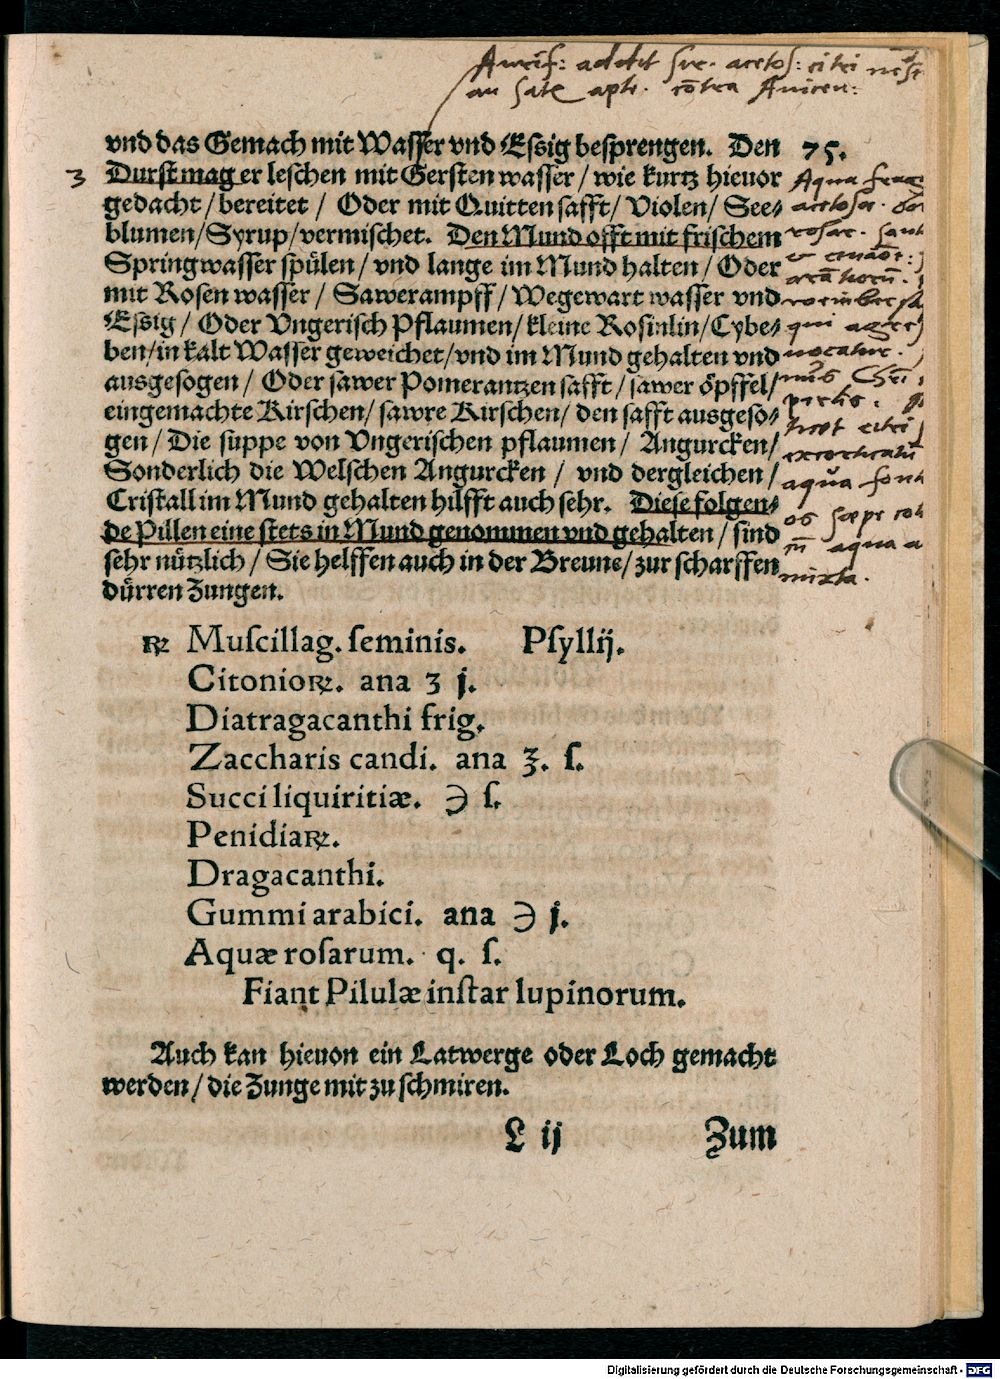 addit acetos: citri
contra Auicen:
vnd das Gemach mit Wasser vnd Essig besprengen. Den
75.
3
Durst mag er leschen mit Gersten wasser / wie kurtz hieuor
gedacht / bereitet / Oder mit Quitten safft / Violen / See⸗
blumen / Syrup / vermischet. Den Mund offt mit frischem
Springwasser spülen / vnd lange im Mund halten / Oder
mit Rosen wasser / Sawerampff / Wegewart wasser vnd
Essig / Oder Vngerisch Pflaumen / kleine Rosinlin / Cybe⸗
ben / in kalt Wasser geweichet / vnd im Mund gehalten vnd
ausgesogen / Oder sawer Pomerantzen safft / sawer öpffel /
eingemachte Kirschen / sawre Kirschen / den safft ausgeso⸗
gen / Die suppe von Vngerischen pflaumen / Angurcken /
Sonderlich die Welschen Angurcken / vnd dergleichen /
Cristall im Mund gehalten hilfft auch sehr. Diese folgen⸗
de Pillen eine stets in Mund genommen vnd gehalten / sind
sehr nützlich / Sie helffen auch in der Breune / zur scharffen
dürren Zungen.
Aqua
acetosae.
rosar.
qui
uocatur.
citri
aqua
os saepe
aqua
mixta.
℞ Muſcillag. ſeminis. Pſyllij.
Citonioꝝ. ana ʒ j.
Diatragacanthi frig.
Zaccharis candi. ana ʒ. ſ.
Succi liquiritiæ. ℈ ſ.
Penidiaꝝ.
Dragacanthi.
Gummi arabici. ana ℈ j.
Aquæ roſarum. q. ſ.
Fiant Pilulæ inſtar lupinorum.
Auch kan hieuon ein Latwerge oder Loch gemacht
werden / die Zunge mit zu schmiren.
L ij Zum
Digitalisierung gefördert durch die Deutsche Forschungsgemeinschaft - DFG